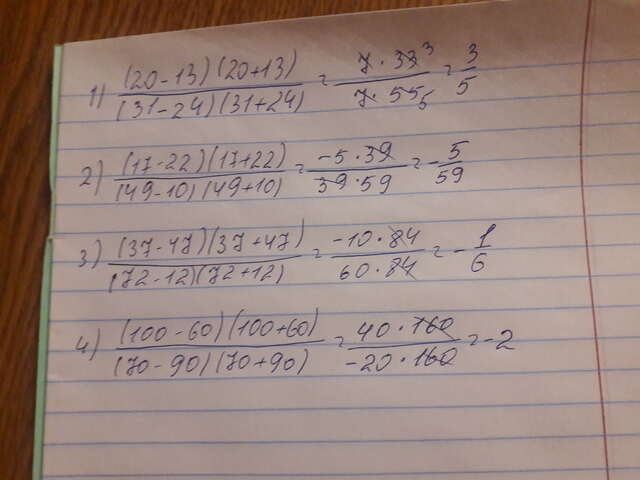 1) (20-13)(20+13)/(31-24)(31+24) = 7·33 3/7·55 5 = 3/5
2) (17-22)(17+22)/(49-10)(49+10) = -5·39/39·59 = -5/59
3) (37-47)(37+47)/(72-12)(72+12) = -10·84/60·84 = -1/6
4) (100-60)(100+60)/(70-90)(70+90) = 40·160/-20·160 = -2